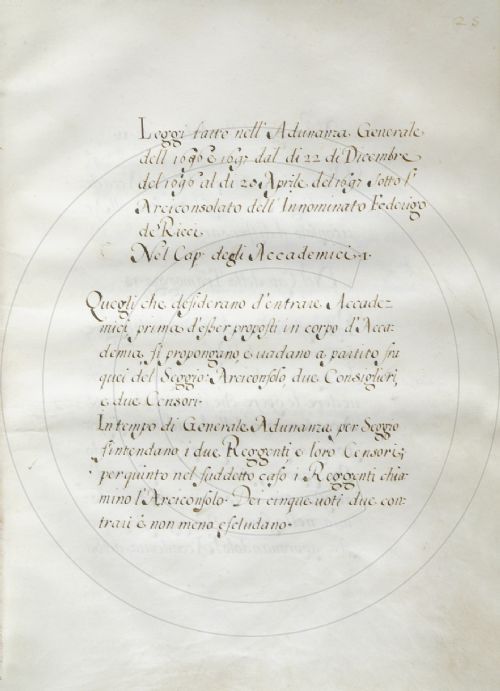 25
Leggi fatte nell' Adunanza Generale
dell 1696 e 1697 dal di 22 di Dicembre
del 1696 al di 20 Aprile del 1697 sotto l'
Arciconsolato dell' Innominato Federigo
de Ricci
Nel Cap. degli Accademici 1.
Quegli che desiderano d'entrare Accade=
mici prima d'esser proposti in corpo d'Acca=
demia si propongano, e vadano a partito fra
quei del Seggio: Arciconsolo, due Consiglieri,
e due Censori.
In tempo di Generale Adunanza per Seggio
s'intendano i due Reggenti e loro Censori;
per quinto nel suddetto caso i Reggenti chia=
mino l'Arciconsolo. Dei cinque voti due con=
trarii e non meno escludano.